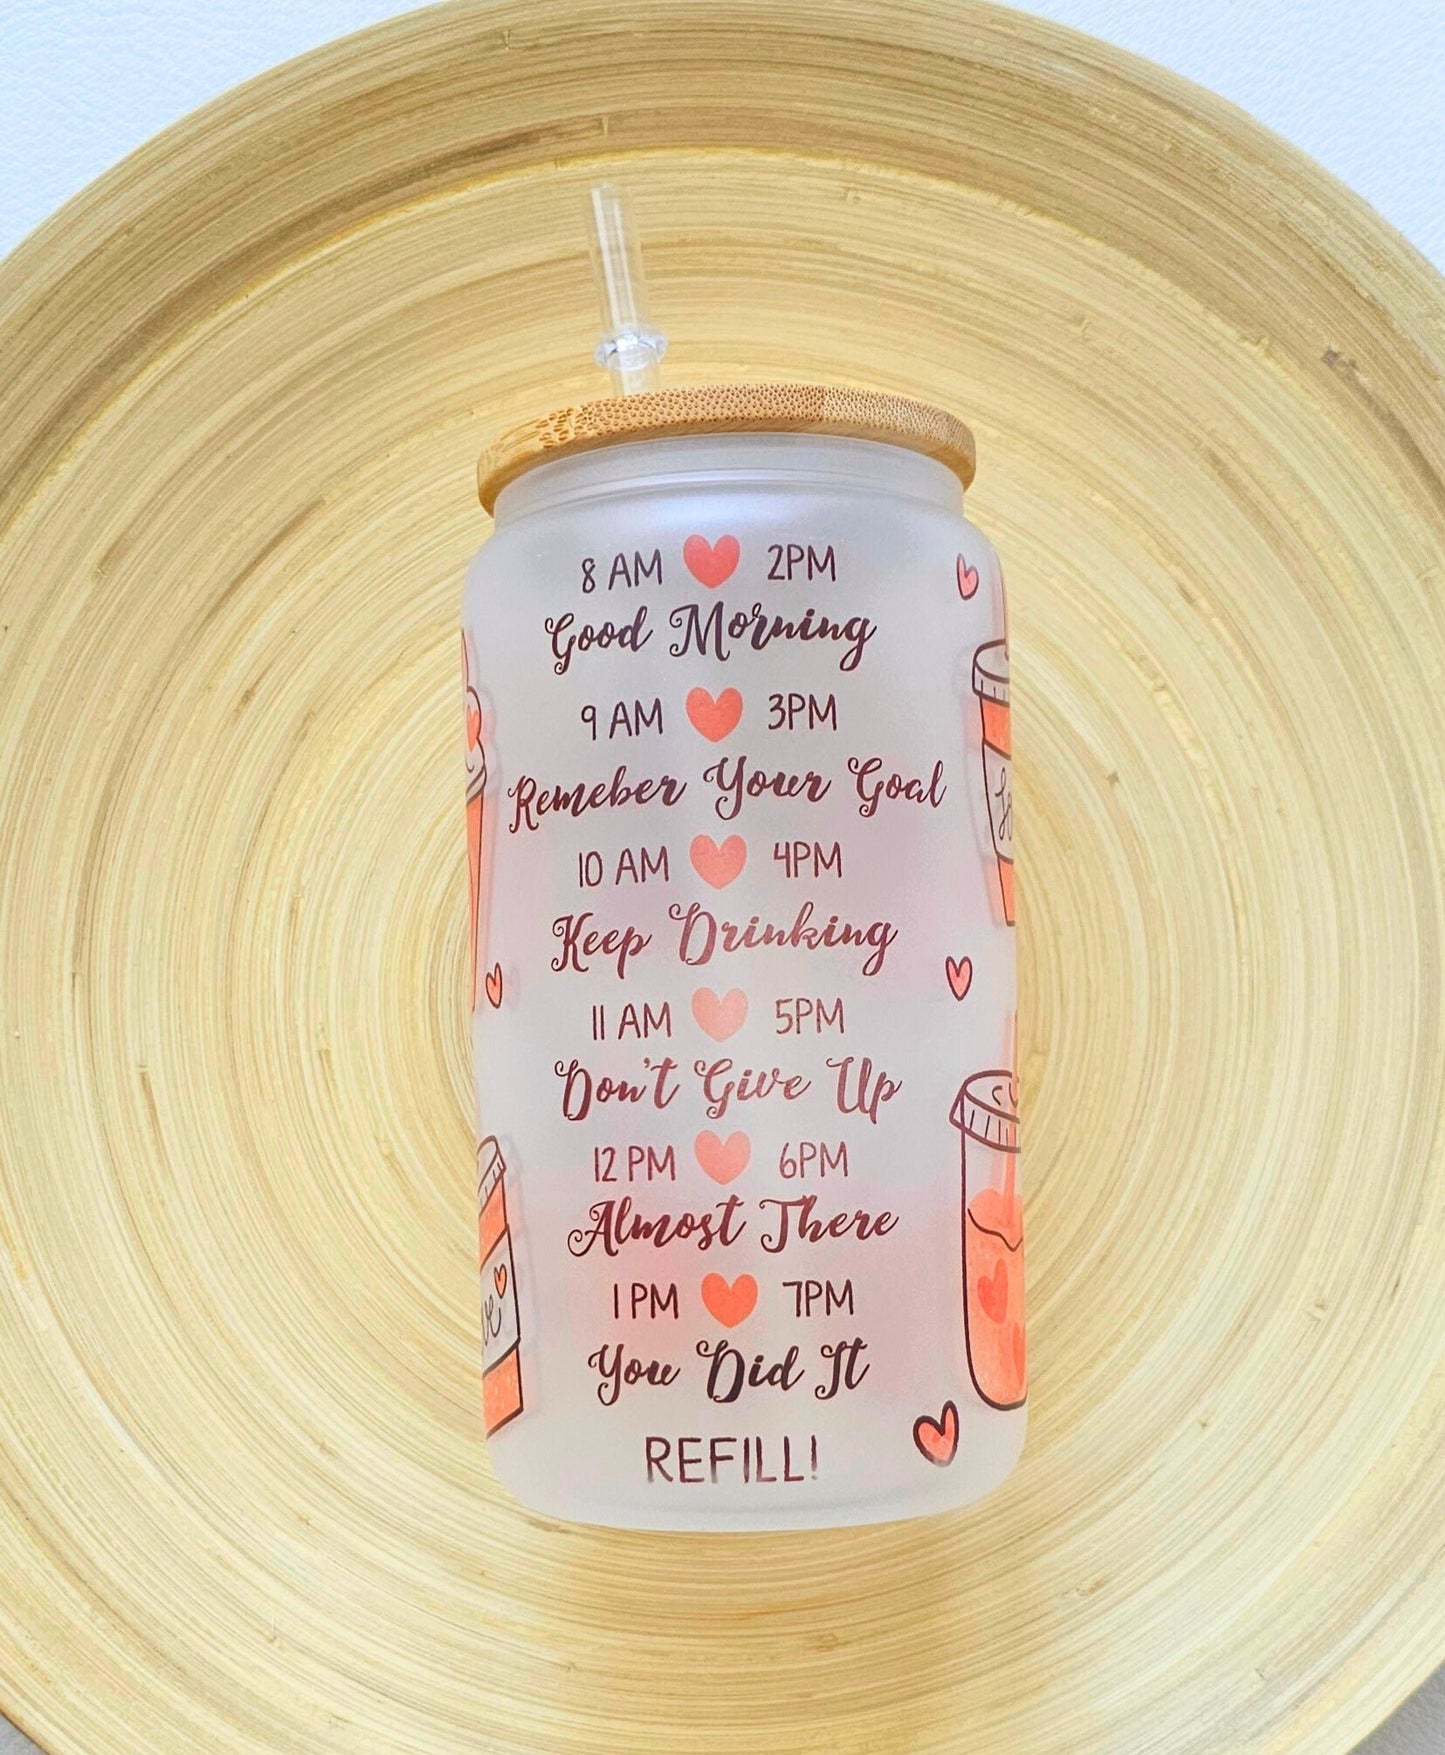 8 AM 2PM
Good Morning
9 AM 3PM
Remeber Your Goal
10 AM 4PM
Keep Drinking
11 AM 5PM
Don't Give Up
12 PM 6PM
Almost There
1 PM 7PM
You Did It
REFILL!